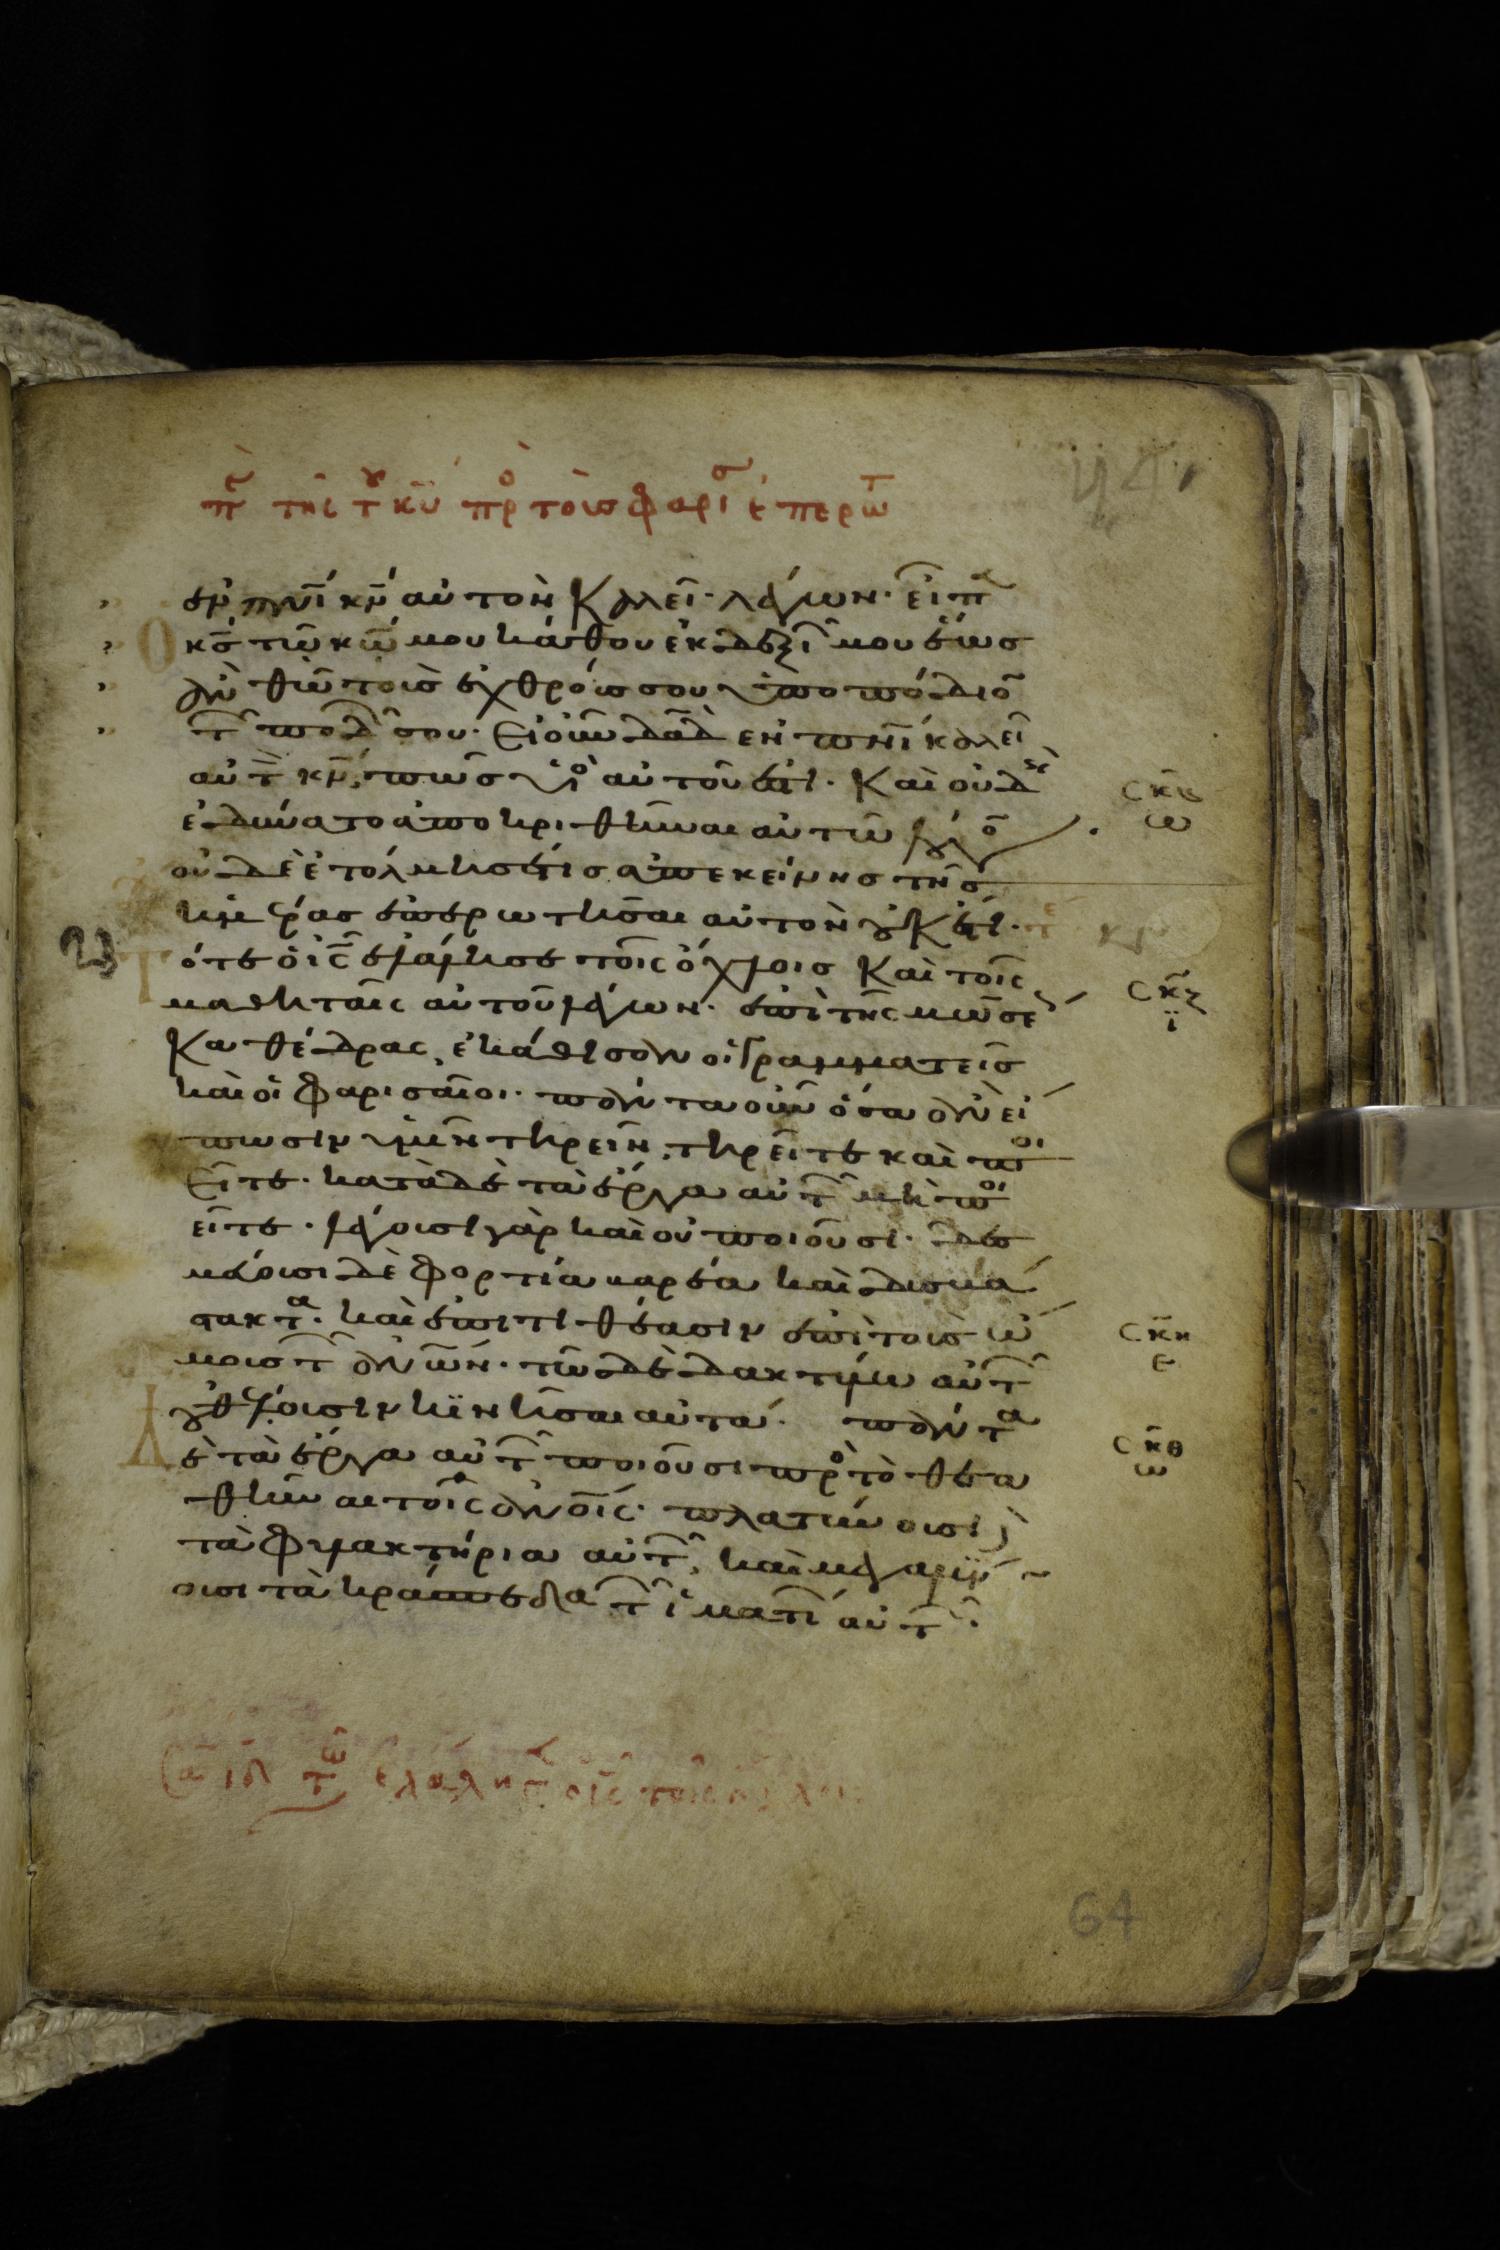 πε της του κυ πρ τους φαρισ επερωτ
ἐν πνι κν αὐτὸν καλεῖ· λέγων· εἶπε
Ο κς τῶ κω μου κάθου ἐκ δεξι μου ἕως
ἂν θῶ τοὺς ἐχθρούς σου ὑποπόδιον
τ ποδ σου· εἰ οὖν δαδ ἐν πνι καλεῖ
αὐτ κν, πῶς υἱὸ αὐτοῦ ἐστι· Καὶ οὐδεὶ
ἐδύνατο ἀποκριθῆναι αὐτῶ λόγο
οὐδὲ ἐτόλμησέ τις ἀπ εκείνης τῆς
ἡμέρας ἐπερωτῆσαι αὐτὸν οὐκέτι· τε
Τότε ὁ ις ἐλάλησε τοῖς ὄχλοις καὶ τοῖς
μαθηταῖς αὐτοῦ λέγων· ἐπὶ τῆς μωσε
καθέδρας ἐκάθισαν οἱ γραμματεῖς
καὶ οἱ φαρισαῖοι· πάντα οὖν ὅσα ἂν εἴ
πωσιν ὑμῖν τηρεῖν, τηρεῖτε καὶ ποι
εῖτε· κατὰ δὲ τὰ ἔργα αὐτ μὴ ποι
εῖτε· λέγουσι γὰρ καὶ οὐ ποιοῦσι· δεσ
μεύουσι δὲ φορτία βαρέα καὶ δυσβά
στακτα· καὶ ἐπιτιθέασιν ἐπὶ τοὺς ὤ
μους τ ἀνων· τῶ δὲ δακτύλω αὐτ
οὐ θέλουσιν κινῆσαι αὐτά· πάντα
Δ ὲ τὰ ἔργα αὐτ ποιοῦσι πρὸ τὸ θεα
θῆναι τοῖς ἀνοις· πλατύνουσι
τὰ φυλακτήρια αὐτ, καὶ μεγαλύν
ουσι τὰ κράσπεδα τ ἱματι αὐτ·
σκς
ω
23
σκζ
ϊ
σκη
ε
σκθ
ω
ιδ τ ελάλησ ο ις τοις οχλοις
64